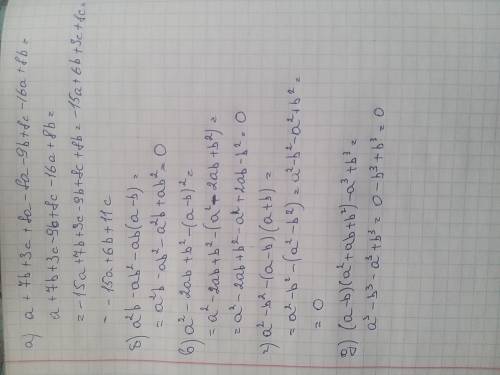 а) a + 7b + 3c + 8a - 8a - 9b + 8c - 16a + 8b =
a + 7b + 3c - 9b + 8c - 16a + 8b =
= -15a + 7b + 3c - 9b + 8c + 8b = -15a + 6b + 3c + 8c =
= -15a + 6b + 11c
б) a²b - ab² - ab(a-b) =
= a²b - ab² - a²b + ab² = 0
в) a² - 2ab + b² - (a-b)² =
= a² - 2ab + b² - (a² - 2ab + b²) =
= a² - 2ab + b² - a² + 2ab - b² = 0
г) a² - b² - (a-b)(a+b) =
= a² - b² - (a² - b²) = a² - b² - a² + b² =
= 0
д) (a-b)(a² + ab + b²) - a³ + b³ =
a³ - b³ - a³ + b³ = 0 - b³ + b³ = 0